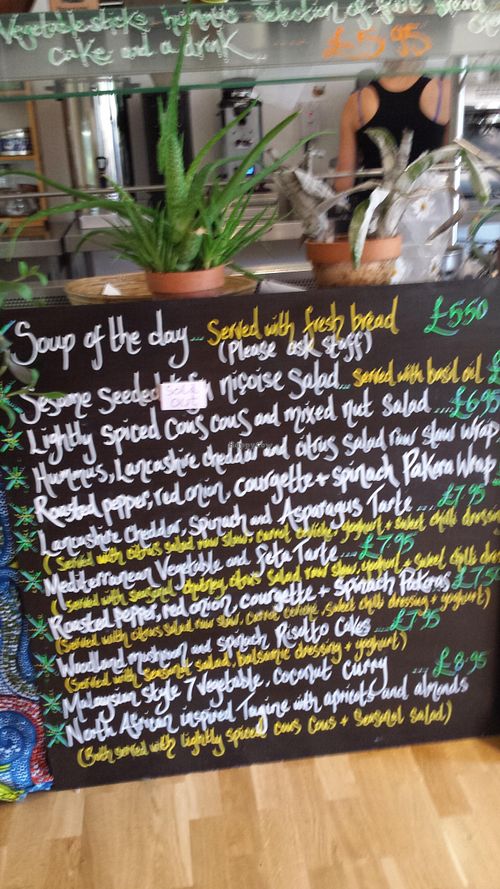 Vegetable sticks selection of five
cake and a drink... £5.95
Soup of the day... Served with fresh bread £5.50
(Please ask staff)
Sesame Seeded niçoise Salad... Served with basil oil £
SOLD OUT
Lightly Spiced Cous cous and mixed nut Salad.... £6.95
Hummus, Lancashire cheddar and citrus Salad raw slaw Wrap
Roasted pepper, red onion, courgette + spinach Pakora Wrap
Lancashire Cheddar, Spinach and Asparagus Tarte.... £7.95
(Served with citrus salad raw slaw, carrot ceviche, yoghurt + sweet chilli dressing
Mediterranean Vegetable and feta Tarte... £7.95
(Served with seasonal chutney, citrus Salad raw slaw, yoghurt + sweet chilli
Roasted pepper, red onion, courgette + spinach Pakoras £7.5
(Served with citrus salad raw slaw, carrot ceviche, sweet chilli dressing + yoghurt)
Woodland mushroom and spinach Risotto Cakes.... £7.95
(Served with seasonal salad, balsamic dressing + yoghurt)
Malaysian style 7 Vegetable, coconut Curry .... £8.95
North African inspired Tagine with apricots and almonds
(Both served with lightly spiced cous cous + Seasonal Salad)